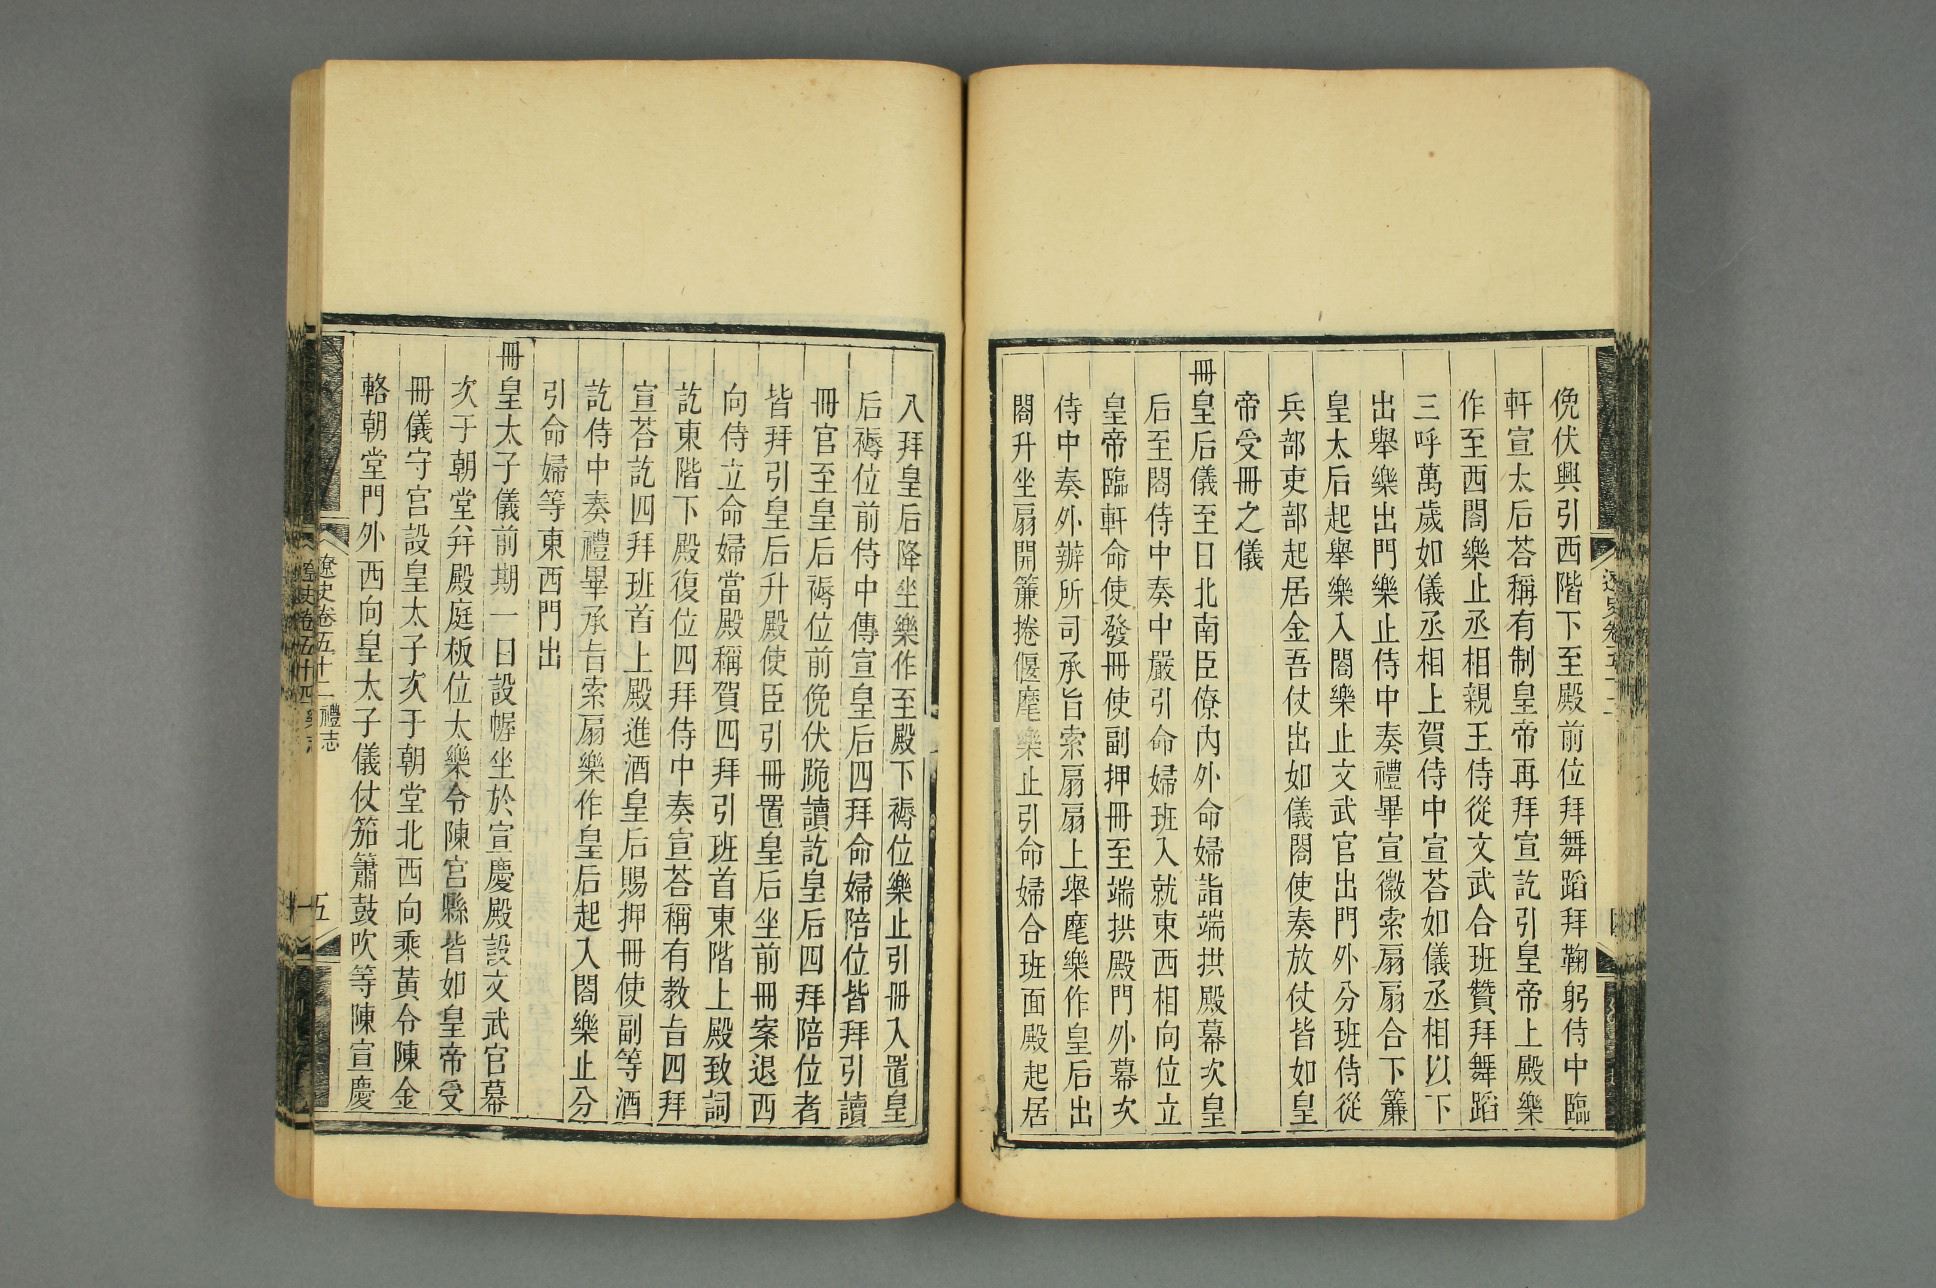 俛伏興引西階下至殿前位拜舞蹈拜鞠躬侍中臨
軒宣太后荅稱有制皇帝再拜宣訖引皇帝上殿樂
作至西閤樂止丞相親王侍從文武合班贊拜舞蹈
三呼萬歲如儀丞相上賀侍中宣荅如儀丞相以下
出舉樂出門樂止侍中奏禮畢宣徽索扇扇合下簾
皇太后起舉樂入閤樂止文武官出門外分班侍從
兵部吏部起居金吾仗出如儀閤使奏放仗皆如皇
帝受冊之儀
冊皇后儀至日北南臣僚內外命婦詣端拱殿幕次皇
后至閤侍中奏中嚴引命婦班入就東西相向位立
皇帝臨軒命使發冊使副押冊至端拱殿門外幕次
侍中奏外辦所司承旨索扇扇上舉麾樂作皇后出
閤升坐扇開簾捲偃麾樂止引命婦合班面殿起居
八拜皇后降坐樂作至殿下褥位樂止引冊入置皇
后褥位前侍中傳宣皇后四拜命婦陪位皆拜引讀
冊官至皇后褥位前俛伏跪讀訖皇后四拜陪位者
皆拜引皇后升殿使臣引冊置皇后坐前冊案退西
向侍立命婦當殿稱賀四拜引班首東階上殿致詞
訖東階下殿復位四拜侍中奏宣荅稱有教旨四拜
宣荅訖四拜班首上殿進酒皇后賜押冊使副等酒
訖侍中奏禮畢承旨索扇樂作皇后起入閤樂止分
引命婦等東西門出
冊皇太子儀前期一日設幄坐於宣慶殿設文武官幕
次于朝堂幷殿庭板位太樂令陳宮縣皆如皇帝受
冊儀守宮設皇太子次于朝堂北西向乘黃令陳金
輅朝堂門外西向皇太子儀仗笳簫鼓吹等陳宣慶
遼史卷五十二 禮志
五